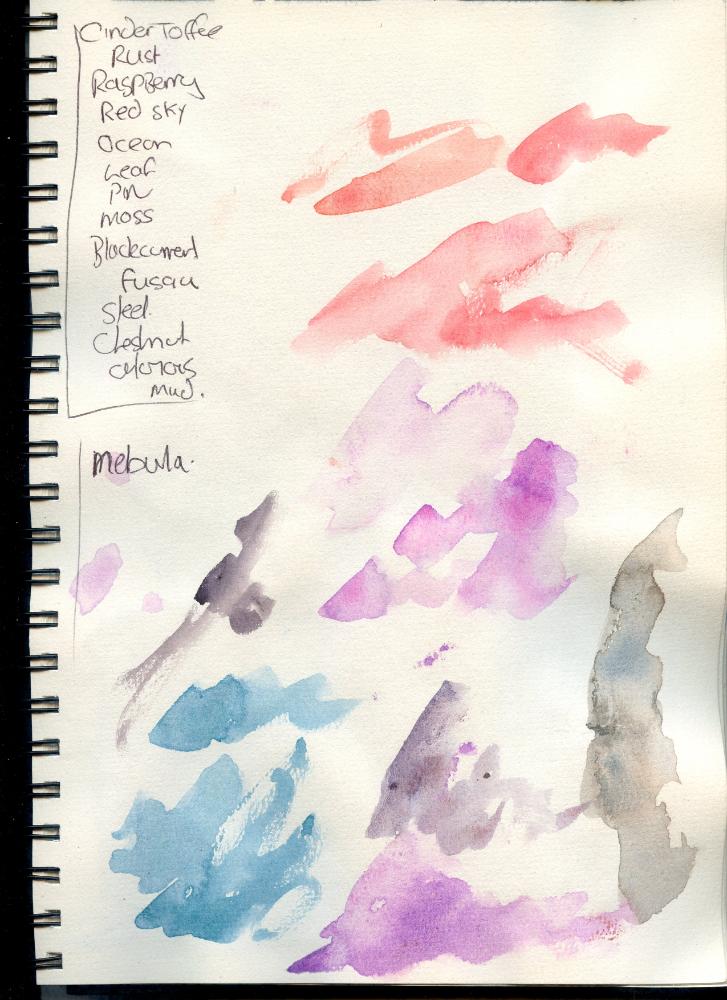 Cinder Toffee
Rust
Raspberry
Red sky
Ocean
Leaf
moss
Blackcurrent
Steel.
Chestnut
mud.
Mebula.